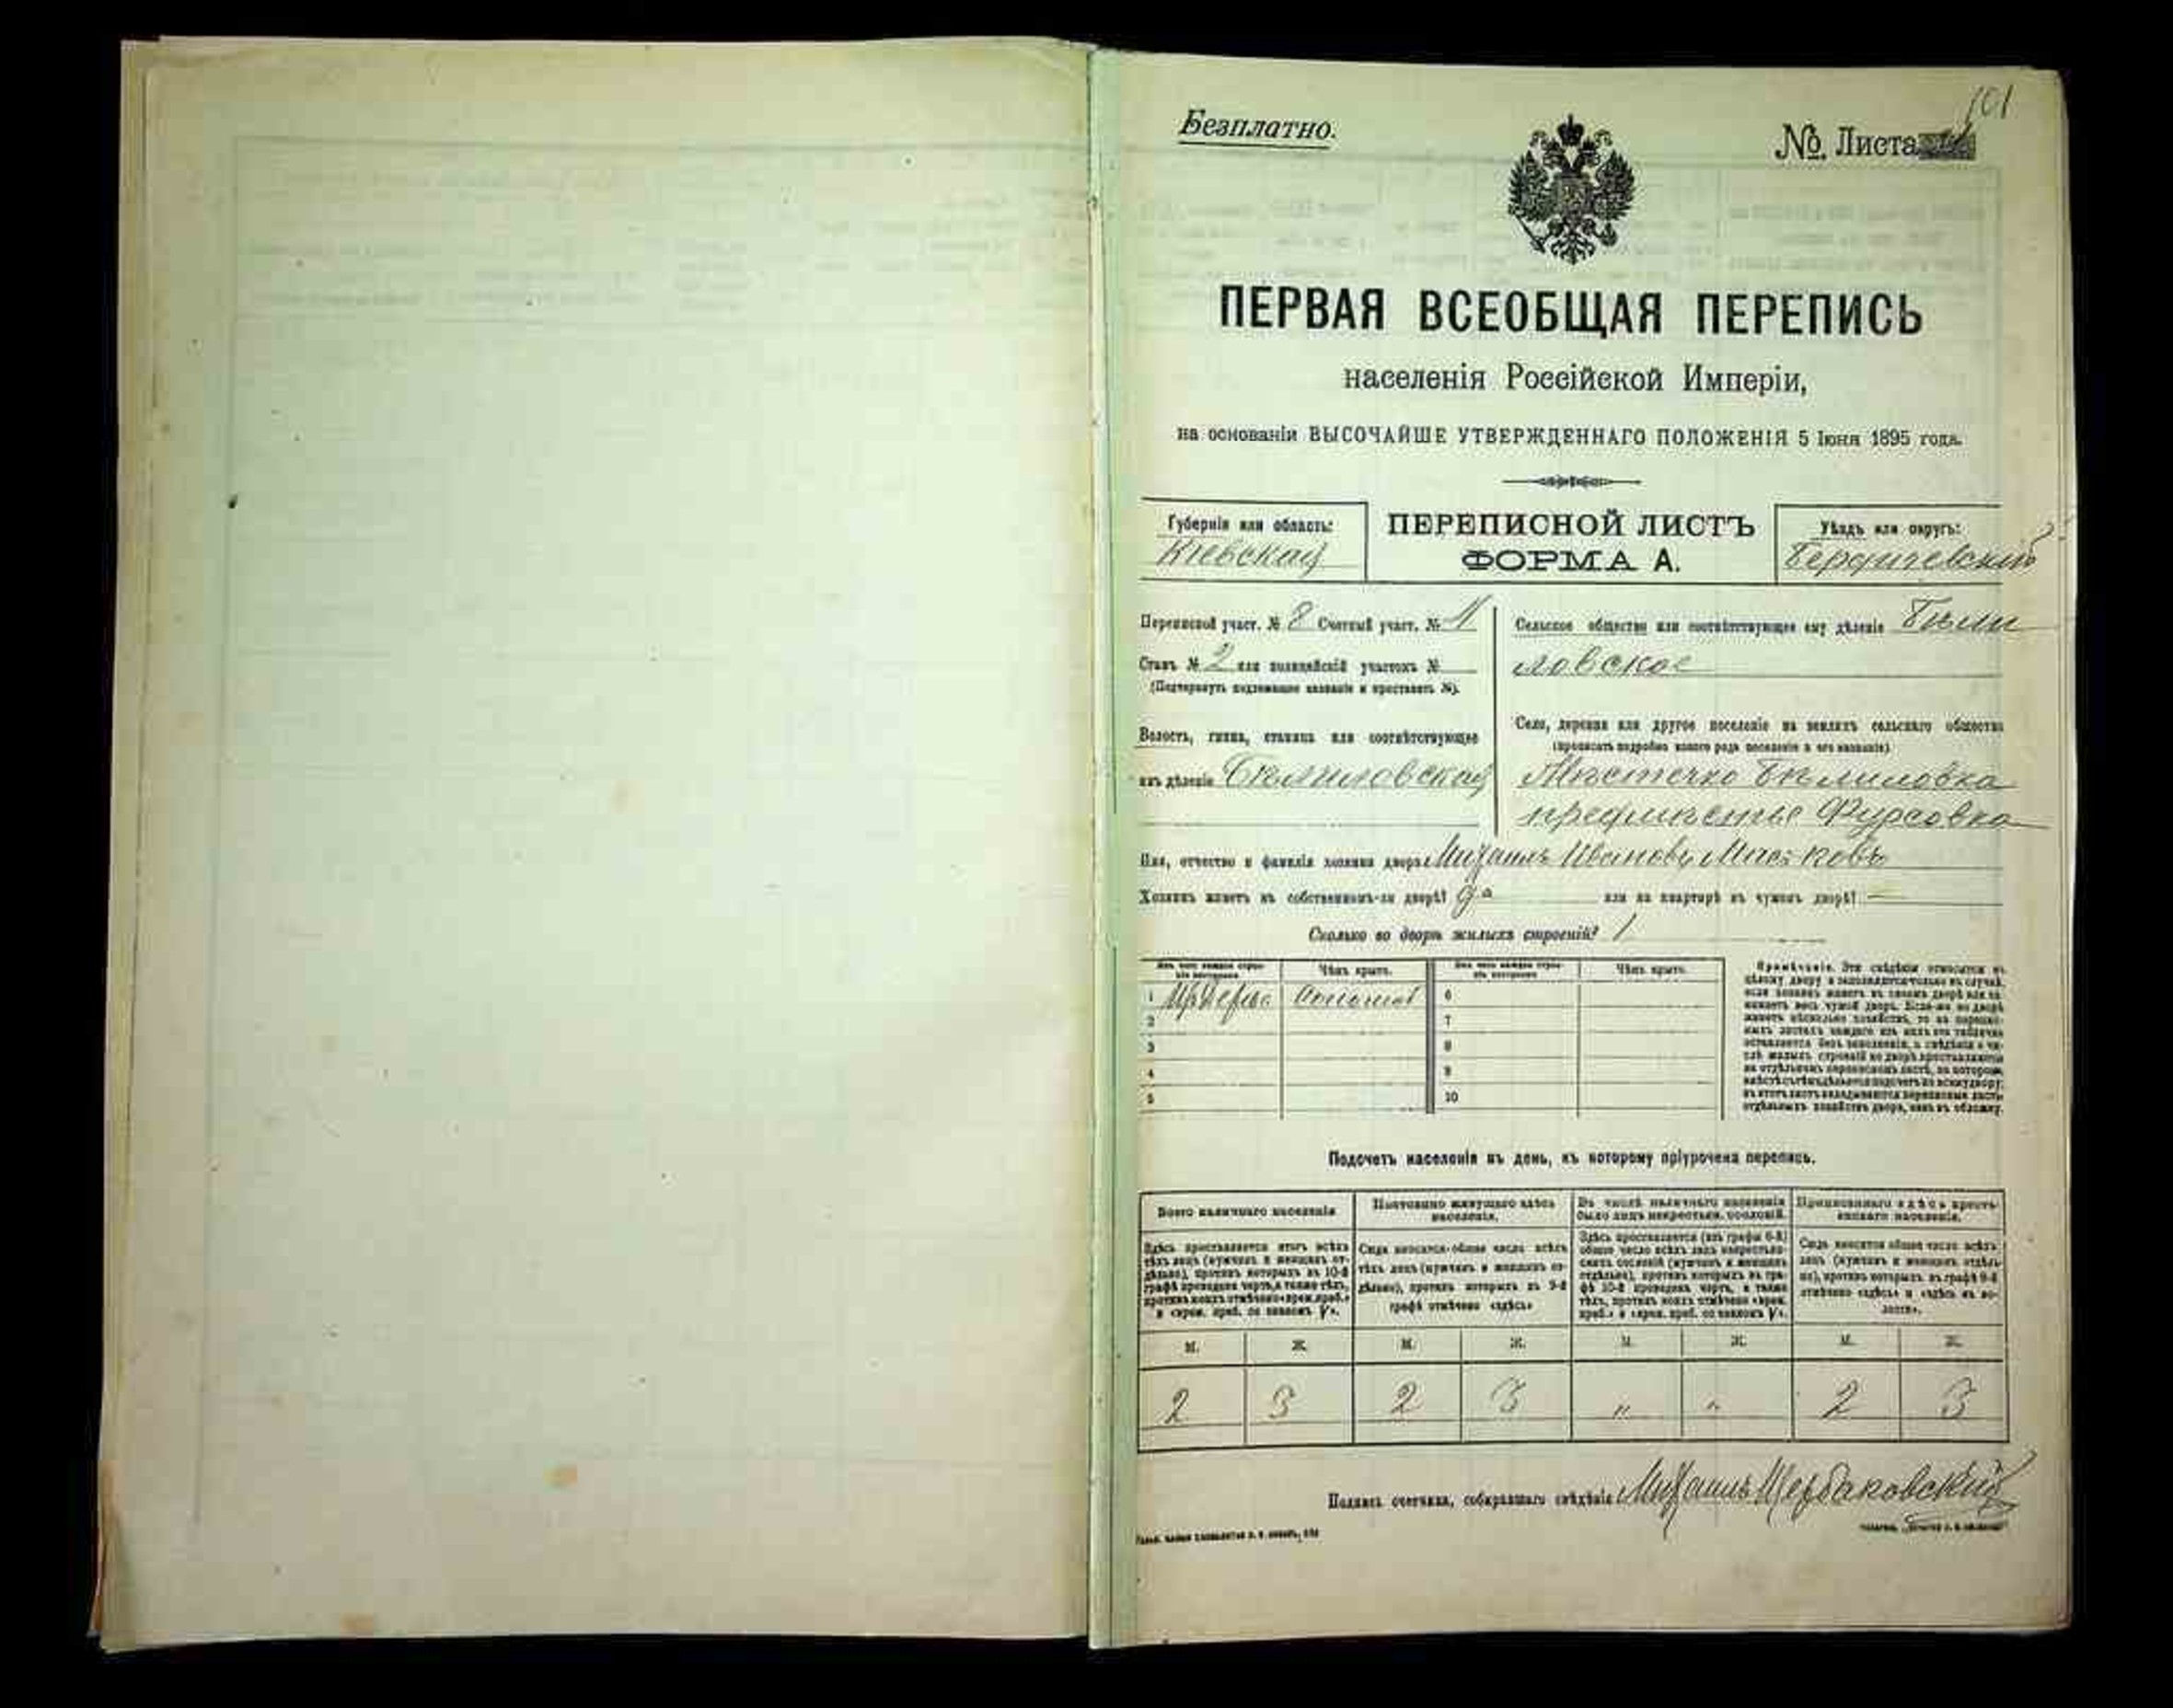 101
Безплатно.
№. Листа
ПЕРВАЯ ВСЕОБЩАЯ ПЕРЕПИСЬ
населенія Россійской Имперіи,
на основаніи ВЫСОЧАЙШЕ УТВЕРЖДЕННАГО ПОЛОЖЕНІЯ 5 Іюня 1895 года.
Губернія или область:
Кіевская
ПЕРЕПИСНОЙ ЛИСТЪ
ФОРМА А.
Уѣздъ или округъ:
Бердичевскій
Переписной участ. № 8 Счетный участ. № 11
Станъ № 2 или полицейскій участокъ №
(Подчеркнуть подлежащее названіе и проставить №).
Волость, гмина, станица или соотвѣтствующее
имъ дѣленіе Бѣлиловская
Сельское общество или соотвѣтствующее ему дѣленіе Бѣли
ловское
Село, деревня или другое поселеніе на земляхъ сельскаго общества
(прописать подробно какого рода поселеніе и его названіе)
Мѣстечко Бѣлиловка
предмѣстье Фурсовка
Имя, отчество и фамилія хозяина двора Михаилъ Ивановъ
Хозяинъ живетъ въ собственномъ-ли дворѣ? да или на квартирѣ въ чужомъ дворѣ? —
Сколько во дворѣ жилыхъ строеній? 1
Изъ чего каждое строеніе построено Чѣмъ крыто. Изъ чего каждое строеніе построено Чѣмъ крыто.
1 Изъ дерева Соломой 6
2 7
3 8
4 9
5 10
Примѣчаніе. Эти свѣдѣнія относятся къ
цѣлому двору и заполняются только въ случаѣ,
если хозяинъ живетъ въ своемъ дворѣ или за-
нимаетъ весь чужой дворъ. Если-же во дворѣ
живетъ нѣсколько хозяйствъ, то на перепис-
ныхъ листахъ каждаго изъ нихъ эта табличка
оставляется безъ заполненія, а свѣдѣнія о чи-
слѣ жилыхъ строеній во дворѣ проставляются
на отдѣльномъ переписномъ листѣ, на которомъ
вмѣстѣ съ тѣмъ дѣлается подсчетъ по всему двору;
въ этотъ листъ вкладываются переписные листы
отдѣльныхъ хозяйствъ двора, какъ въ обложку.
Подсчетъ населенія въ день, къ которому пріурочена перепись.
Всего наличнаго населенія
Постоянно живущаго здѣсь населенія.
Въ числѣ наличнаго населенія было лицъ некрестьян. сословій.
Приписаннаго здѣсь крестьянскаго населенія.
Здѣсь проставляется итогъ всѣхъ
тѣхъ лицъ (мужчинъ и женщинъ от-
дѣльно), противъ которыхъ въ 10-й
графѣ проведена черта, а также тѣхъ,
противъ коихъ отмѣчено «врем. преб.»
и «врем. преб. со знакомъ V».
Сюда вносится общее число всѣхъ
тѣхъ лицъ (мужчинъ и женщинъ от-
дѣльно), противъ которыхъ въ 9-й
графѣ отмѣчено «здѣсь»
Здѣсь проставляется (изъ графы 6-й)
общее число всѣхъ лицъ некрестьян-
скихъ сословій (мужчинъ и женщинъ
отдѣльно), противъ которыхъ въ гра-
фѣ 10-й проведена черта, а также
тѣхъ, противъ коихъ отмѣчено «врем.
преб.» и «врем. преб. со знакомъ V».
Сюда вносится общее число всѣхъ
лицъ (мужчинъ и женщинъ отдѣль-
но), противъ которыхъ въ графѣ 8-й
отмѣчено «здѣсь» и «здѣсь въ во-
лости».
М. Ж. М. Ж. М. Ж. М. Ж.
2 3 2 3 " " 2 3
Подпись счетчика, собиравшаго свѣдѣнія Михаилъ Щербаковскій